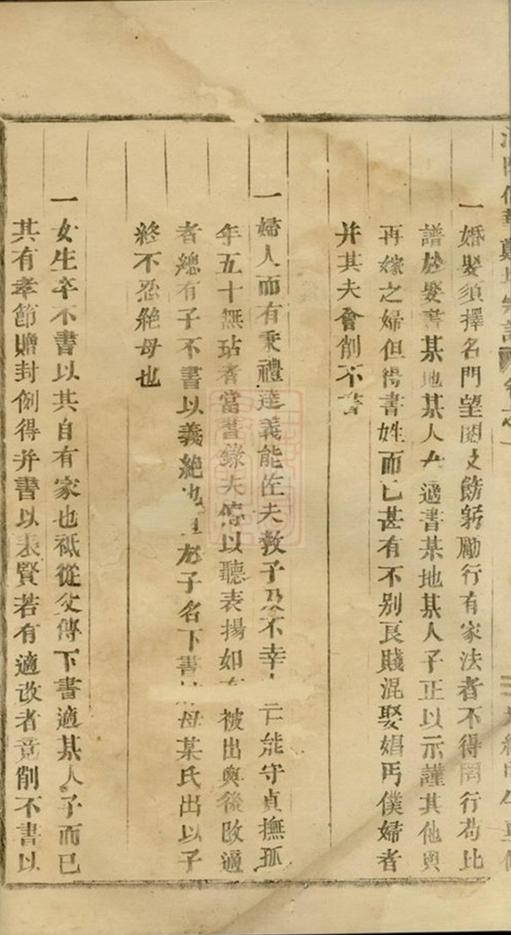 一婚娶須擇名門望閥文飭躬勵行有家法者不得罔行苟比
譜於娶書某地某人女適書某地某人子正以示謹其他與
再嫁之婦但得書姓而已甚有不别良賤混娶娼丐僕婦者
并其夫會削不書
一婦人而有秉禮達義能佐夫教子及不幸能守貞撫孤
年五十無玷者當書錄夫傳以聽表揚如有被出與後改適
者總有子不書以義絶也於子名下書母某氏出以子
終不忍絶母也
一女生卒不書以其自有家也祇從父傳下書適某人子而已
其有孝節贈封例得并書以表賢若有適改者竟削不書以